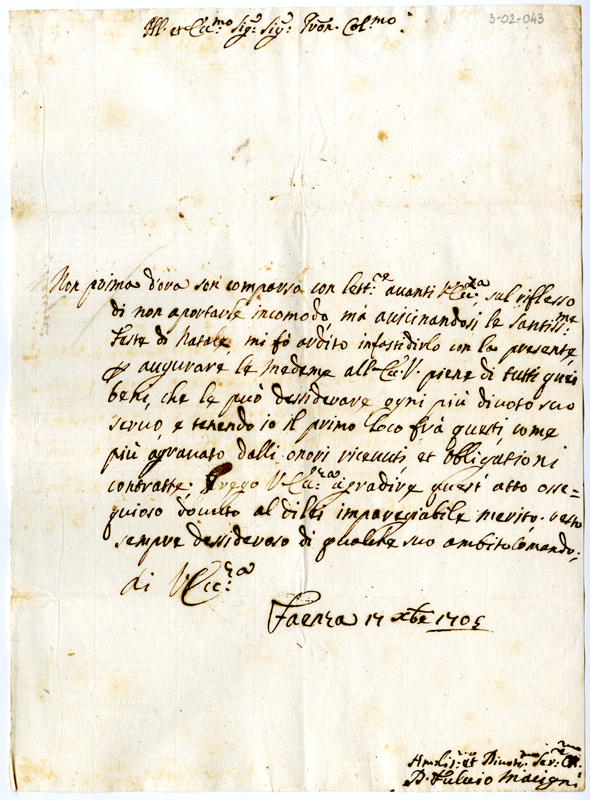 3-02-043
Ill. et Ecc.mo Sig.r Sig.r Pron. Col.mo
Non prima d'ora son comparso con lett.re avanti V.Ecc.za sul riflesso
di non aportarle incomodo, ma avicinandosi le Santiss.me
Feste di Natale, mi fò ardito infastidirlo con la presente,
p augurare le medeme all'Ecc. V. piene di tutti quei
beni, che le può dessiderare ogni più divoto suo
servo, e tenendo io il primo loco frà questi, come
più agravato dalli onori ricevuti, et obligationi
contratte. Prego V.Ecc.za agradire quest'atto osse=
quioso dovuto al di lei impareggiabile merito. resto
sempre dessideroso di qualche suo ambito Comando;
di V.Ecc.za
Faenza 17 xbre 1705
Humiliss.o et Divotiss.mo Ser.re
D. Fulvio Macigni